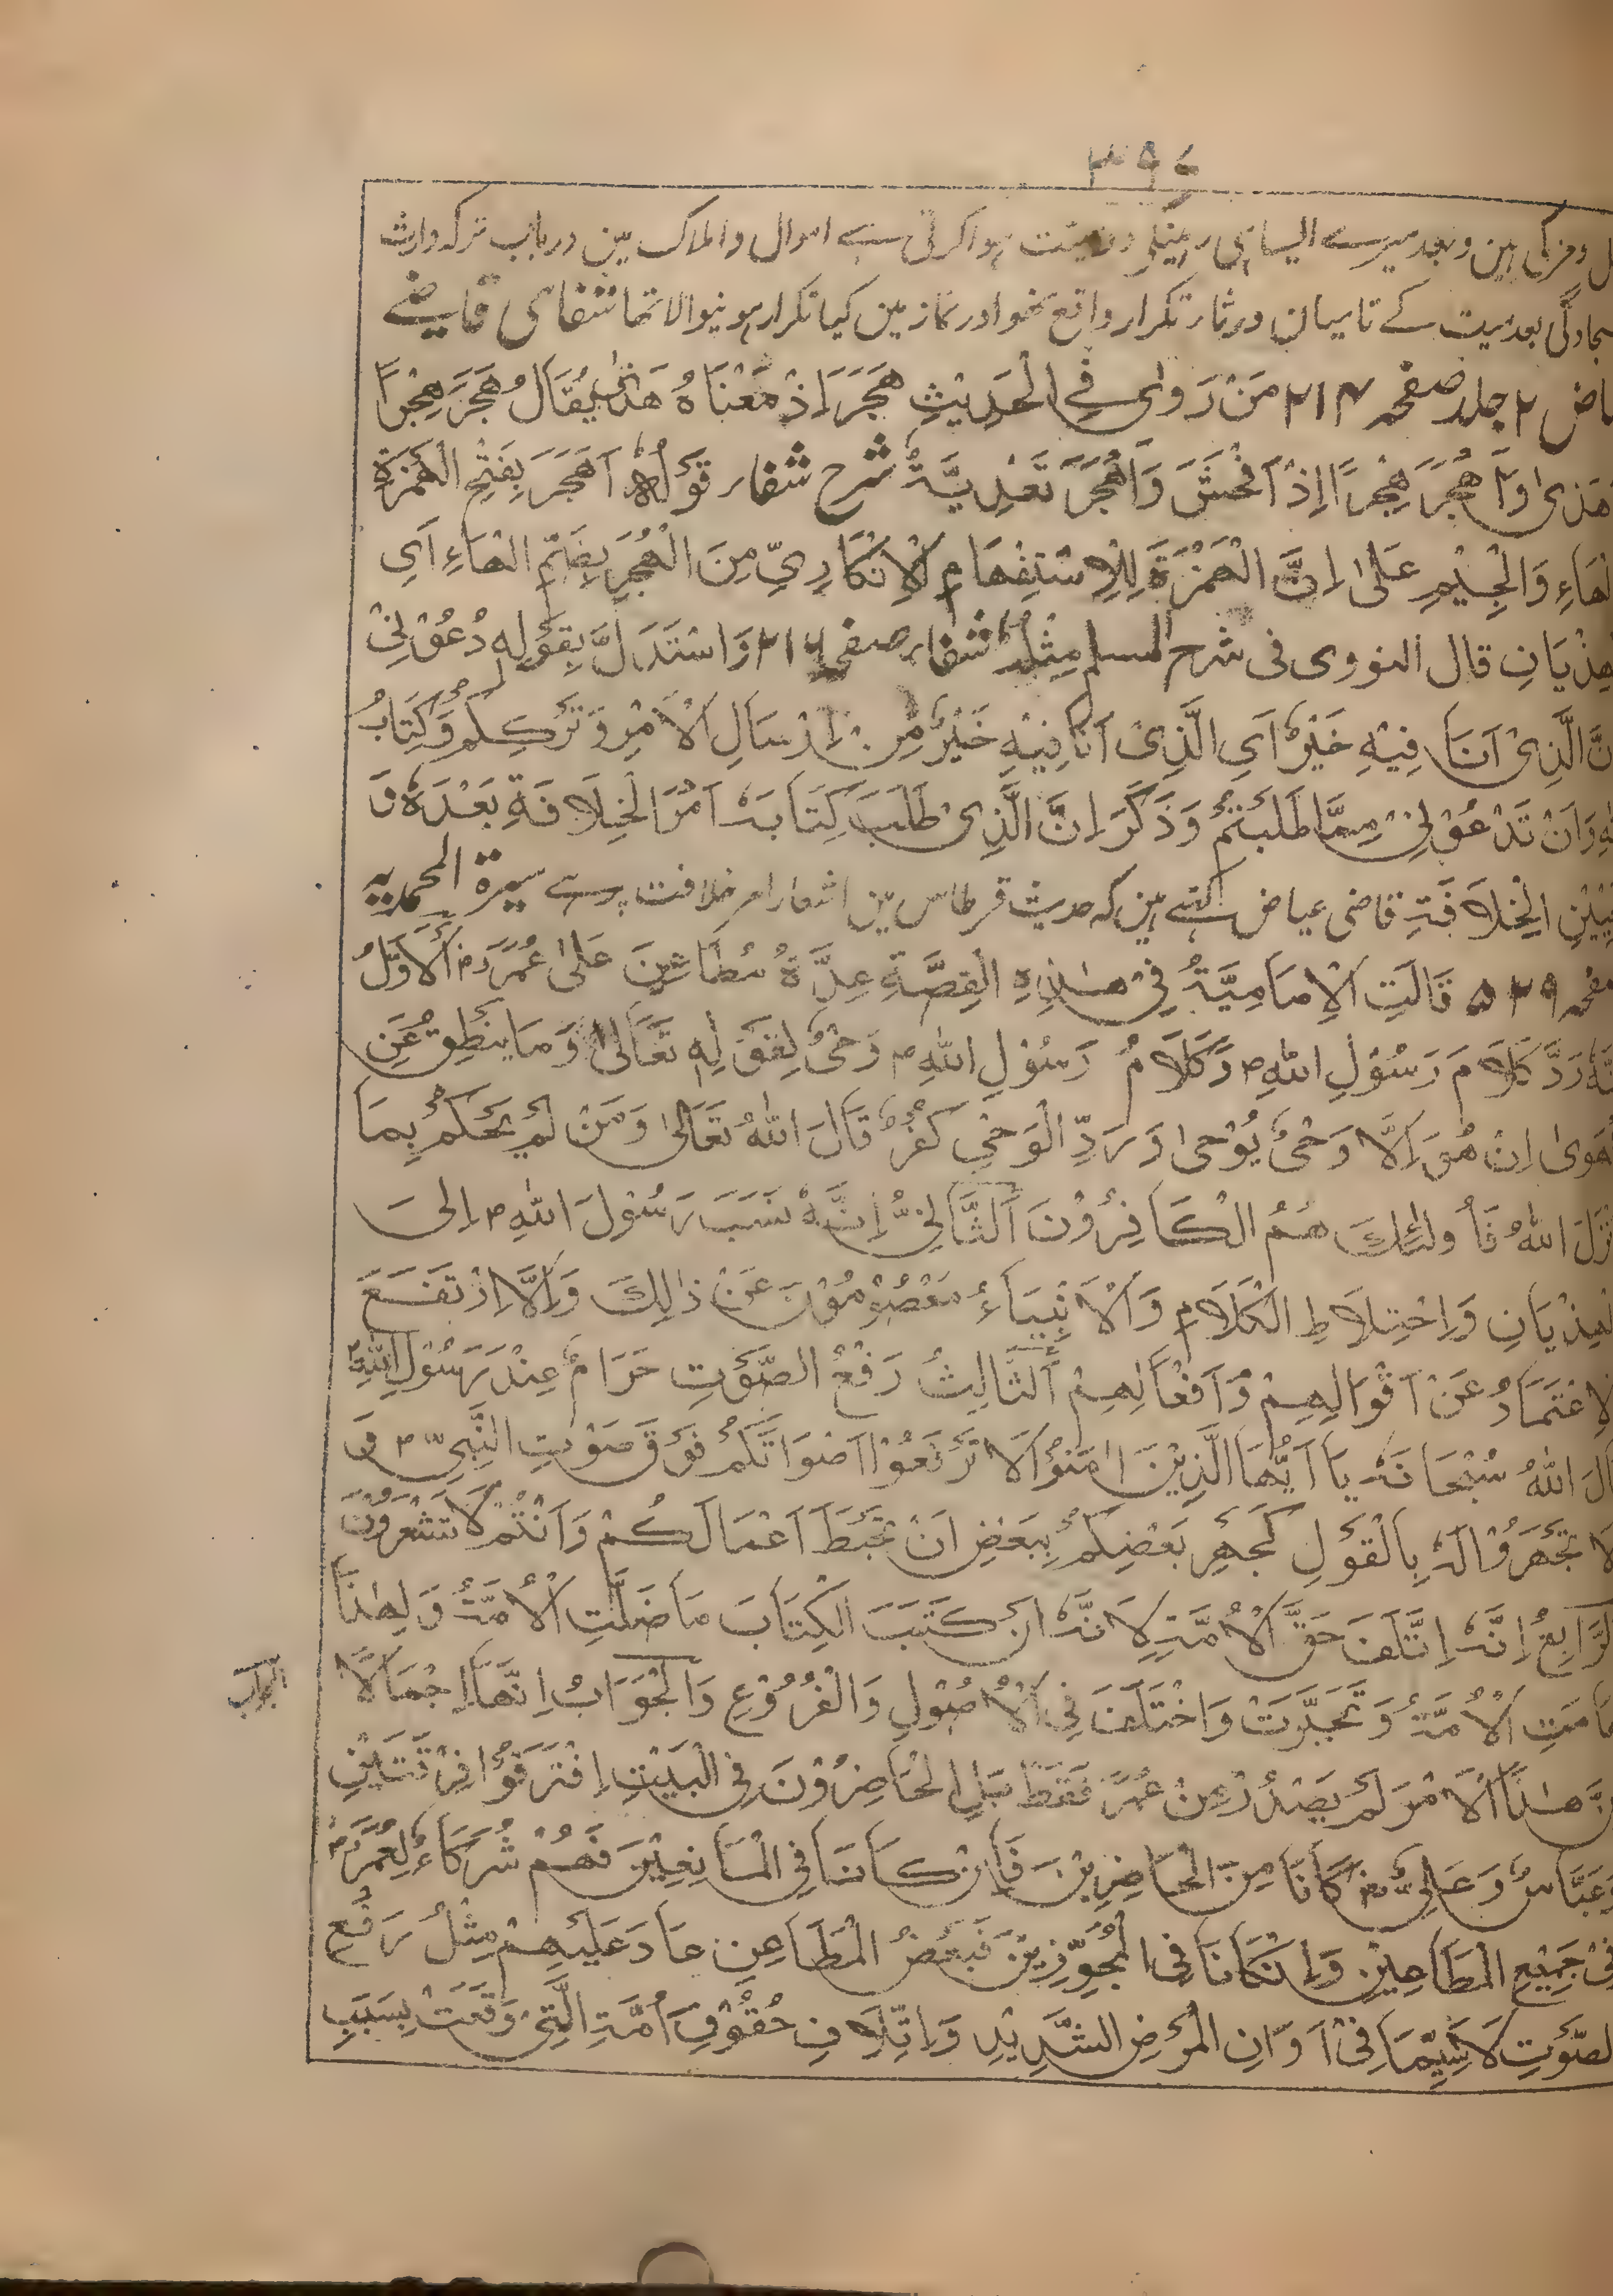 ۳۹۷
وبعد میرے ایسا ہی رہینگے وصیت ہوا کرتی ہے اموال واملاک مین درباب ترکہ وارث
بعد میت کے تا میان ورثا تکرار واقع نہو اور نماز مین کیا تکرار ہونیوالا تھا شفای قاضے
۲ جلد صفحہ ۲۱۴ مَنْ رَوٰی فِے الْحَدِيْثِ هَجَرَ اِذْ مَعْنَاهُ هَذٰى يُقَالُ هَجَرَ هِجْرًا
هَذٰى وَاَهْجَرَ هِجْرًا اِذْ اَفْحَشَ وَاَهْجَرَ تَعْدِيَةٌ شرح شفاء قَوْلُهُ اَهَجَرَ بِفَتْحِ الْهَمْزَةِ
الْهَاءِ وَالْجِيْمِ عَلٰى اِنَّ الْهَمْزَةَ لِلْاِسْتِفْهَامِ الْاِنْكَارِيِّ مِنَ الْهُجْرِ بِضَمِّ الْهَاءِ اَيِ
هِذْيَانِ قال النووى فى شرح المسلم مِثْلُهُ شفاء صفحہ ۲۱۴ وَاسْتَدَلَّ بِقَوْلِهِ دُعُوْنِيْ
نَّ الَّذِيْ اَنَا فِيْهِ خَيْرٌ اَيِ الَّذِيْ اَنَا فِيْهِ خَيْرٌ مِنْ اِرْسَالِ الْاَمْرِ وَتَرْكِكُمْ وَكِتَابُ
وَاَنْ تَدْعُوْنِيْ مِمَّا طَلَبْتُمْ وَذَكَرَ اِنَّ الَّذِيْ طَلَبَ كِتَابَهُ اَمْرَ الْخِلَافَةِ بَعْدَهُ وَ
الْخِلَافَةِ قاضی عیاض کہتے ہین کہ حدیث قرطاس مین اشعار امر خلافت پر ہے سیرة المحمدیہ
صفحہ ۵۲۹ قَالَتِ الْاِمَامِيَّةُ فِيْ هٰذِهِ الْقِصَّةِ عِدَّةُ مَطَاعِنَ عَلٰى عُمَرَ رض اَلْاَوَّلُ
نَّهُ رَدَّ كَلَامَ رَسُوْلِ اللهِ ص وَكَلَامُ رَسُوْلِ اللهِ ص وَحْيٌ لِقَوْلِهِ تَعَالٰى وَمَا يَنْطِقُ عَنِ
لْهَوٰى اِنْ هُوَ اِلَّا وَحْيٌ يُوْحٰى وَرَدِّ الْوَحْيِ كُفْرٌ قَالَ اللهُ تَعَالٰى وَمَنْ لَمْ يَحْكُمْ بِمَا
نْزَلَ اللهُ فَاُولٰئِكَ هُمُ الْكَافِرُوْنَ اَلثَّانِيْ اِنَّهُ نَسَبَ رَسُوْلَ اللهِ ص اِلىَ
لْهِذْيَانِ وَاِخْتِلَاطِ الْكَلَامِ وَالْاَنْبِيَاءُ مَعْصُوْمُوْنَ عَنْ ذٰلِكَ وَاِلَّا ارْتَفَعَ
لْاِعْتَمَادُ عَنْ اَقْوَالِهِمْ وَاَفْعَالِهِمْ اَلثَّالِثُ رَفْعُ الصَّوْتِ حَرَامٌ عِنْدَ رَسُوْلِ اللهِ ص
الَ اللهُ سُبْحَانَهُ يَا اَيُّهَا الَّذِيْنَ اٰمَنُوْا لَا تَرْفَعُوْا اَصْوَاتَكُمْ فَوْقَ صَوْتِ النَّبِيِّ ص وَ
لَا تَجْهَرُوْا لَهُ بِالْقَوْلِ كَجَهْرِ بَعْضِكُمْ بِبَعْضٍ اَنْ تَحْبَطَ اَعْمَالَكُمْ وَاَنْتُمْ لَا تَشْعُرُوْنَ
لرَّابِعُ اِنَّهُ اِتَّلَفَ حَقَّ الْاُمَّةِ لِاَنَّهُ اِنْ كَتَبَ الْكِتَابَ مَا ضَلَّتِ الْاُمَّةُ وَلِهٰذَا
هَامَتِ الْاُمَّةُ وَتَحَيَّرَتْ وَاخْتَلَفَ فِى الْاُصُوْلِ وَالْفُرُوْعِ وَالْجَوَابُ اِنَّهَا اِجْمَالًا
الجواب
نَّ هٰذَا الْاَمْرَ لَمْ يَصْدُرْ عِنْ عُمَرَ فَقَطْ بَلِ الْحَاضِرُوْنَ فِى الْبَيْتِ اِفْتَرَقُوْا فِرْقَتَيْنِ
وَعَبَّاسٌ وَعَلِيٌّ رض كَانَا مِنَ الْحَاضِرِيْنَ فَاِنْ كَانَا فِى الْمَانِعِيْنَ فَهُمْ شُرَكَاءُ لِعُمَرَ رض
فِيْ جَمِيْعِ الْمَطَاعِيْنِ وَاِنْ كَانَا فِى الْمُجَوِّزِيْنَ فَبَعْضُ الْمَطَاعِنِ عَادَ عَلَيْهِمْ مِثْلُ رَفْعِ
لصَّوْتِ لَا سِيَّمَا فِىْ اَوَانِ الْمَرَضِ الشَّدِيْدِ وَاِتِّلَافِ حُقُوْقِ اُمَّةِ الَّتِيْ وَقَعَتْ بِسَبَبِ